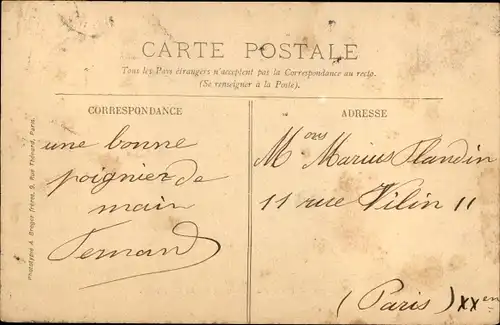 CARTE POSTALE
Tous les Pays étrangers n'acceptent pas la Correspondance au recto.
(Se renseigner à la Poste).
CORRESPONDANCE
une bonne
poignier de
main
Fernand
ADRESSE
Mons Marius Flandin
11 rue Vilin 11
(Paris) XXem
Phototypie A. Breger frères, 9, Rue Thénard, Paris.